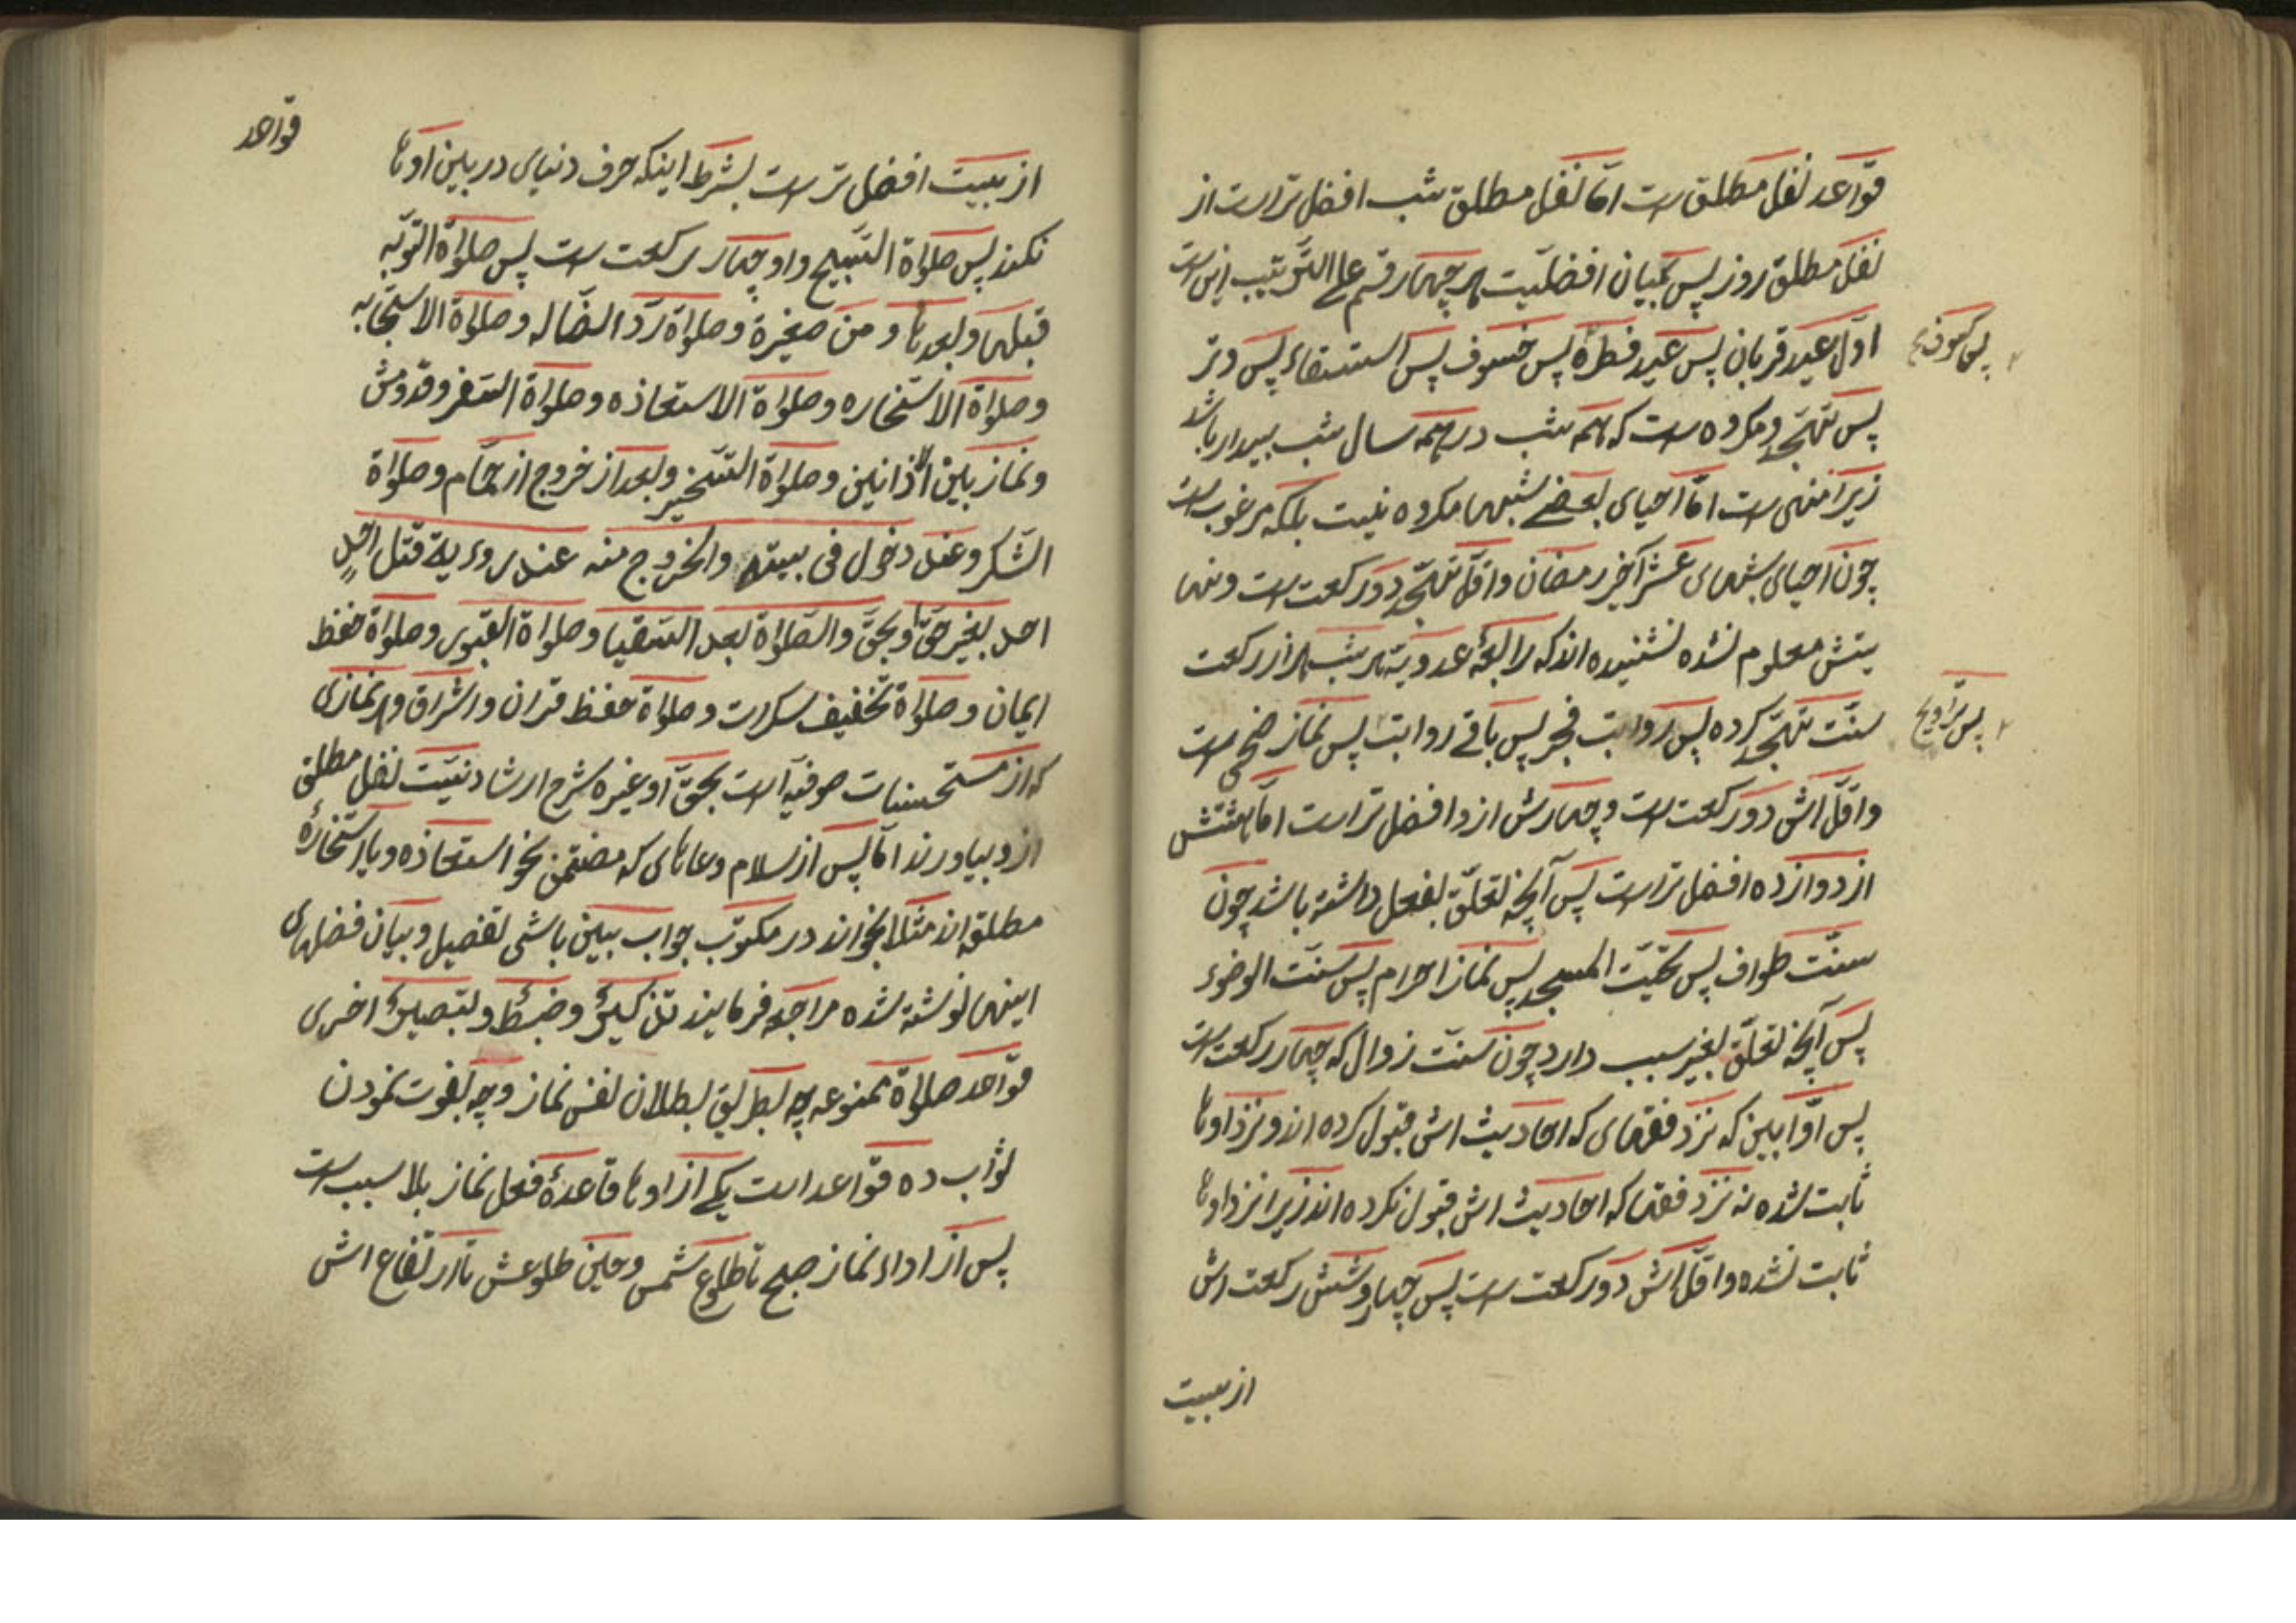 قوّاعد نفل مطلق است امّا نفل مطلق شب افضل تر است از
نفل مطلق روز پس بیان افضلیّت هر چهار قسم علی التّرتیب این است
اوّل عید قربان پس عید فطره پس خسوف پس استسقاء پس وتر
پس کسوف صح
پس تهجّد و مکروه است که همه شب در همه سال شب بیدار باشد
زیرا منهی است امّا احیای بعضی شبها مکروه نیست بلکه مرغوب است
چون احیای شبهای عشر آخر رمضان و اقلّ تهجّد دو رکعت است و نها
یتش معلوم نشده نشنیده اند که رابعهٔ عدویّه هر شب هزار رکعت
سنّت تهجّد کرده پس رواتب فجر پس باقی رواتب پس نماز ضحی است
پس تراویح
و اقلّ اش دو رکعت است و چهارش از دو افضل تر است امّا هشتش
از دوازده افضل تر است پس آنچه تعلّق بفعل داشته باشد چون
سنّت طواف پس تحیّت المسجد پس نماز احرام پس سنّت الوضوء
پس آنچه تعلّق بغیر سبب دارد چون سنّت زوال که چهار رکعت است
پس اوّابین که نزد فقهای که احادیث اش قبول کرده اند و نزد اوها
ثابت شده نه نزد فقها که احادیث اش قبول نکرده اند زیرا نزد اوها
ثابت نشده و اقلّ اش دو رکعت است پس چهار و شش رکعت اش
از بیست
از بیست افضل تر است بشرط اینکه حرف دنیای در بین اوها
نکند پس صلواة التسبیح و او چهار رکعت است پس صلواة التوبه
قبلها و بعدها و من صغیرة و صلواة ردّ الضّاله و صلواة الاستجابه
و صلواة الاستخاره و صلواة الاستعاذه و صلواة السّفر و قدومش
و نماز بین الاذانین و صلواة التسخیر و بعد از خروج از حمّام و صلواة
الشکر و عند دخول فی بیته والخروج منه عند رویة قتل احدٍ
احد بغیر حقّ او بحقّ و الصّلواة بعد السّقیا و صلواة القبور و صلواة حفظ
ایمان و صلواة تخفیف سکرات و صلواة حفظ قران و اشراق و هر نمازی
که از مستحسنات صوفیّه است بحقّ او غیره شرح ارشاد نیّت نفل مطلق
از و بیاورند امّا پس از سلام دعاهای که متضمّن نحو استعاذه و یا استخارهٔ
مطلقه اند مثلا بخواند در مکتوب جواب بیین باشی تفصیل و بیان فضلهای
اینها نوشته شده مراجعه فرمایند تذکیرًا و ضبطًا و لتبصیرًا اخری
قوّاعد صلواة ممنوعه چه بطریق بطلان نفس نماز و چه بفوت نمودن
ثواب ده قوّاعد است یکی از اوها قاعدهٔ فعل نماز بلا سبب است
پس از اداء نماز صبح تا طلوع شمس و حین طلوعش تا ارتفاع اش
قوّاعد